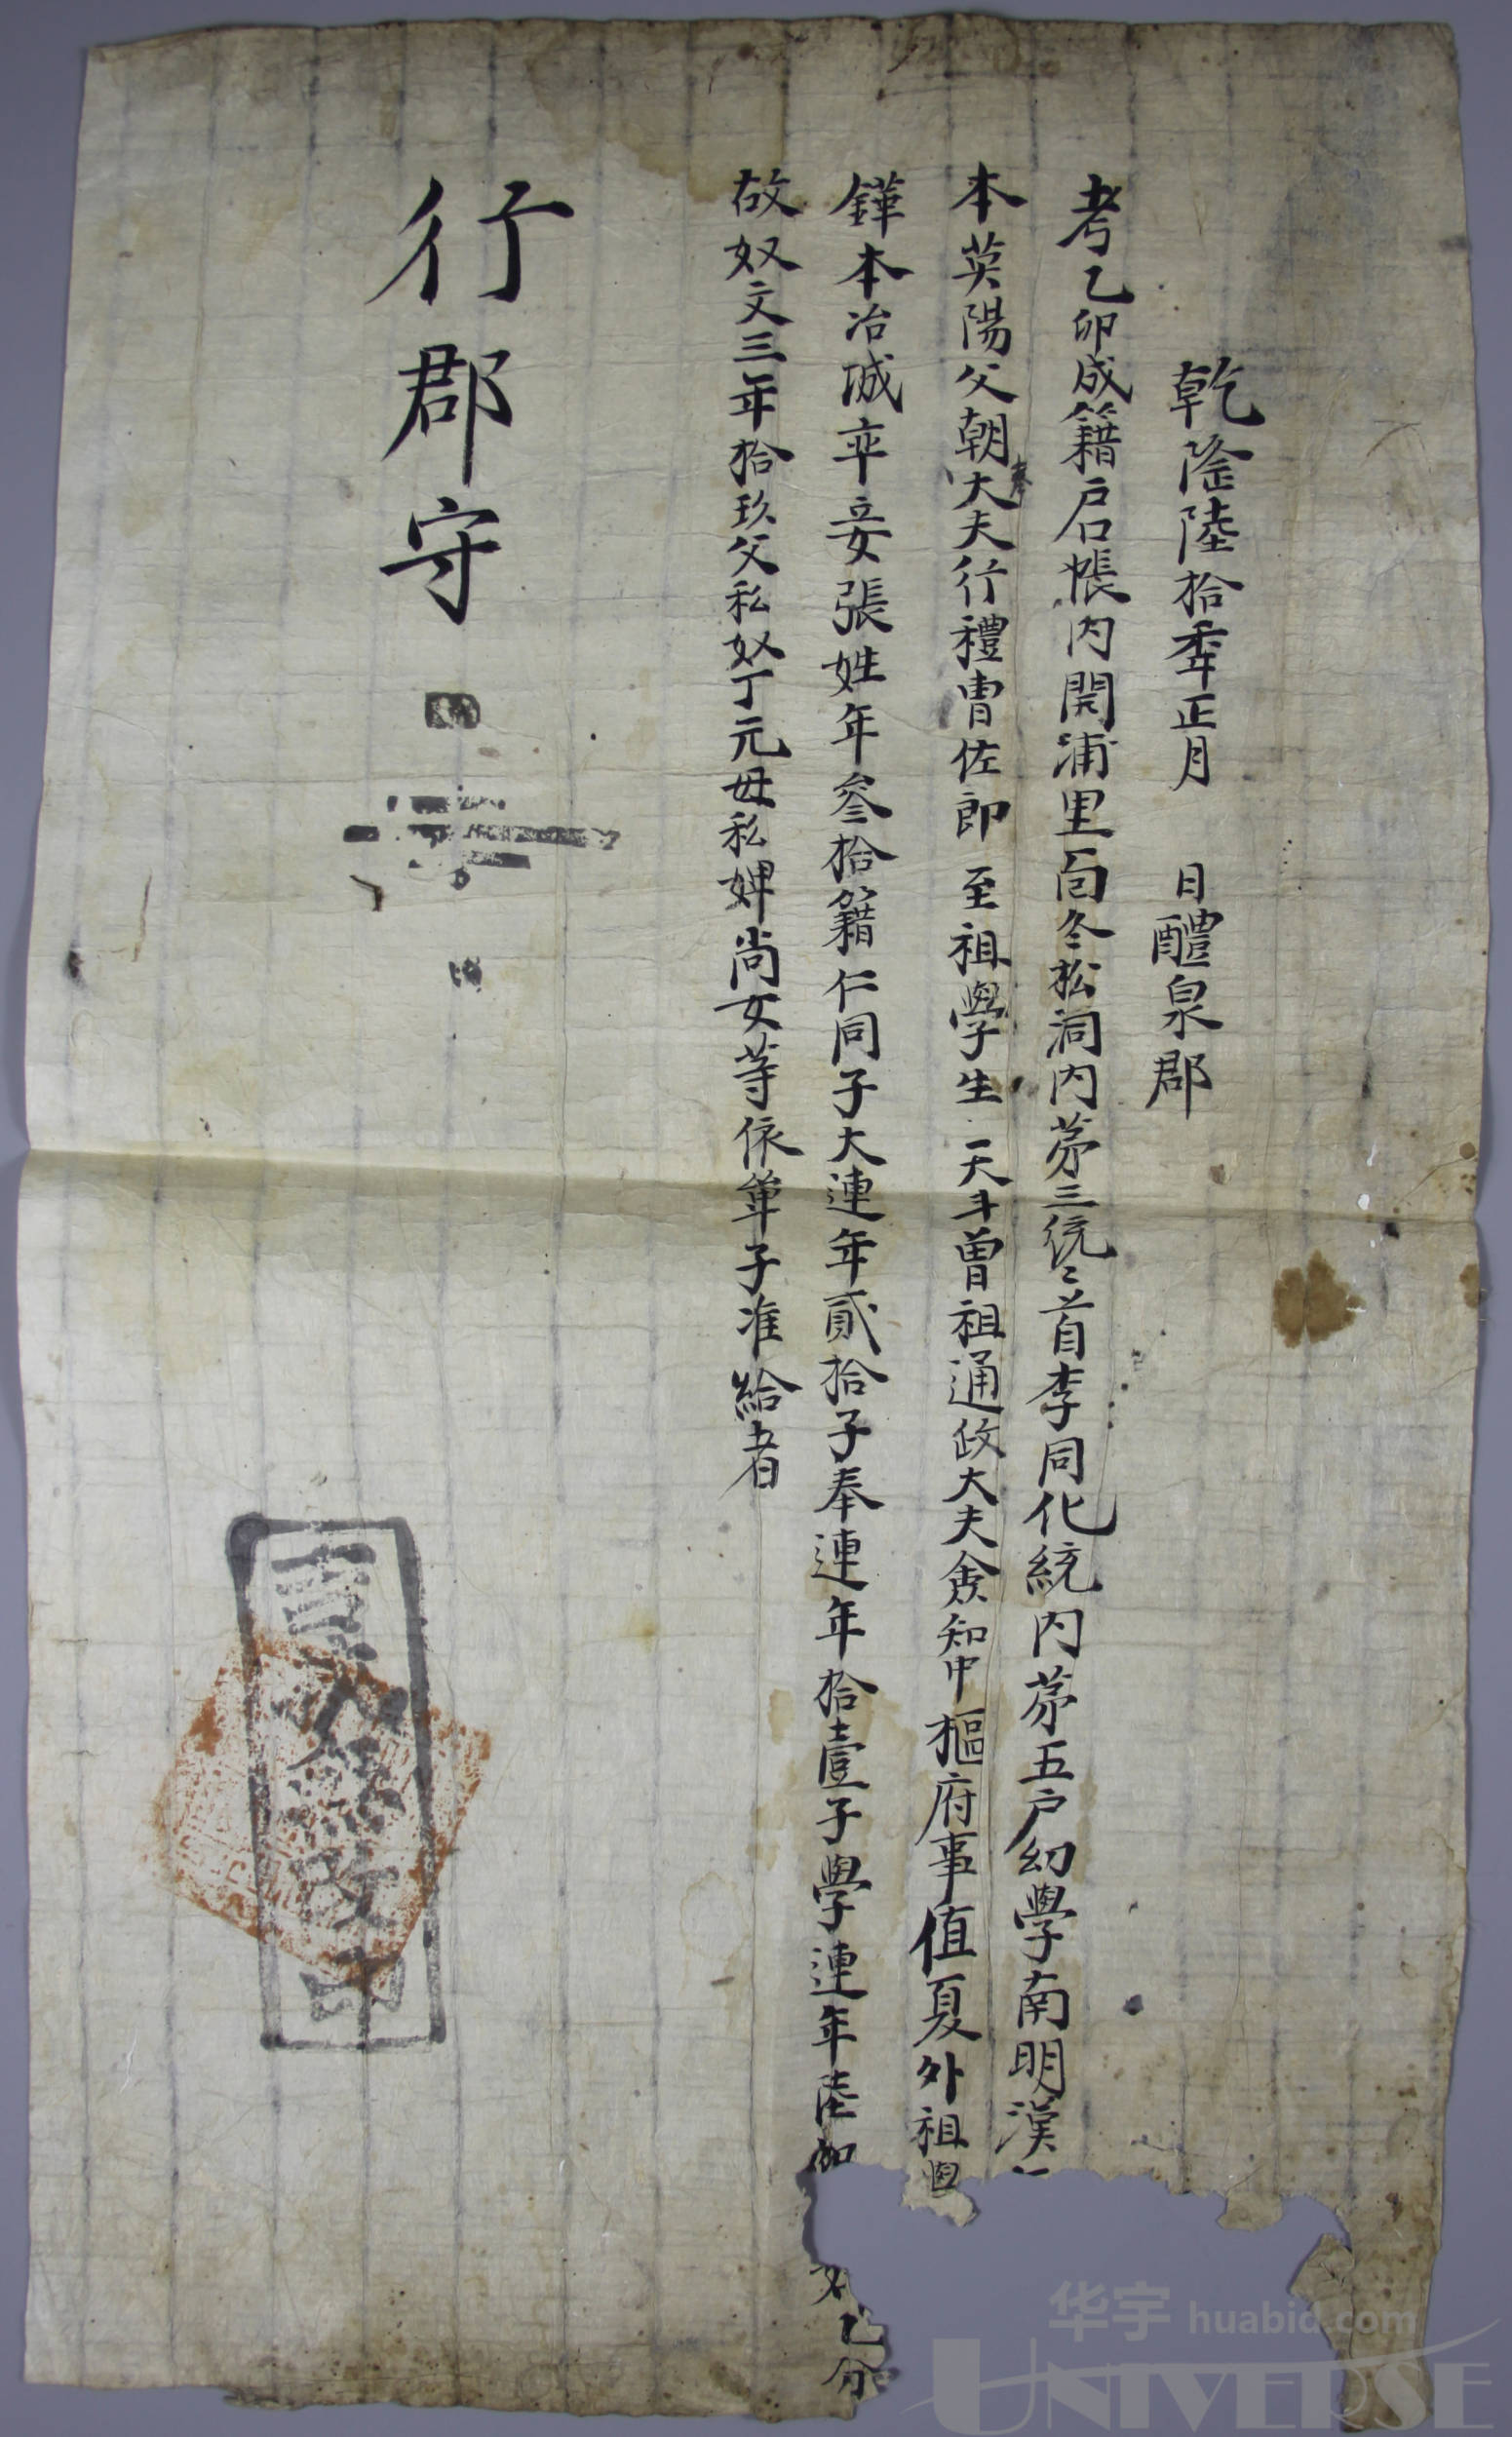 乾隆陸拾秊正月　日醴泉郡
考乙卯成籍戶口帳內開浦里面冬松洞內苐三統〻首李同化統內苐五户幼學南明漢
本英陽父朝奉大夫行禮曹佐郎　至祖學生　天斗曾祖通政大夫僉知中樞府事值夏外祖學
鏵本冶城卒妾張姓年叄拾籍仁同子大連年貳拾子奉連年拾壹子學連年陸
乙分
故奴文三年拾玖父私奴丁元母私婢尚女等依單子准給者
行郡守
改印
华宇 huabid.com
UNIVERSE